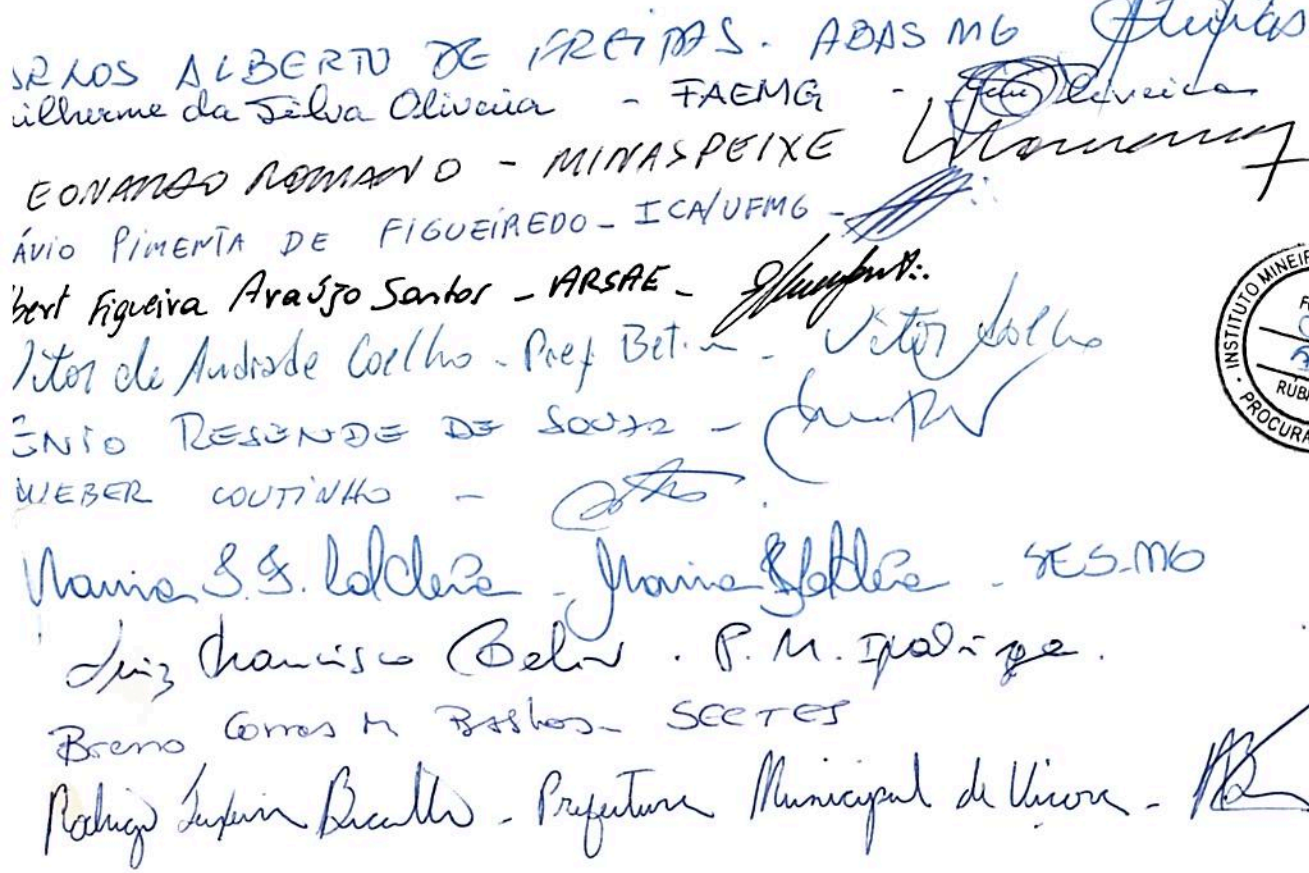 ARLOS ALBERTO DE FREITAS. ABAS MG Freitas
uilherme da Silva Oliveira - FAEMG - Oliveira
EONARDO ROMANO - MINASPEIXE
ÁVIO PIMENTA DE FIGUEIREDO - ICA/UFMG -
bert Figueira Araújo Santos - ARSAE -
Vitor de Andrade Coelho - Pref Betim - Vitor Coelho
ÊNIO RESENDE DE SOUZA -
WEBER COUTINHO -
Marina Caldeira - Marina Caldeira - SES-MG
Luiz Francisco . P. M. Ipatinga.
Breno Gomes M Bastos - SECTES
Rodrigo Teixeira Bicalho - Prefeitura Municipal de Viçosa -
INSTITUTO MINEIR
RUB
PROCURA